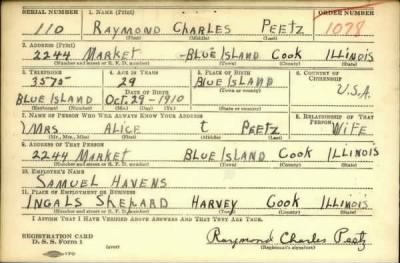 SERIAL NUMBER 1. NAME (Print) ORDER NUMBER
110 RAYMOND CHARLES PEETZ 1078
(First) (Middle) (Last)
2. ADDRESS (Print)
2244 MARKET -BLUE ISLAND COOK ILLINOIS
(Number and street or R. F. D. number) (Town) (County) (State)
3. TELEPHONE 4. AGE IN YEARS 5. PLACE OF BIRTH 6. COUNTRY OF CITIZENSHIP
3575 29 BLUE ISLAND
DATE OF BIRTH (Town or county) U.S.A.
BLUE ISLAND Oct. 29-1910
(Exchange) (Number) (Mo.) (Day) (Yr.) (State or country)
7. NAME OF PERSON WHO WILL ALWAYS KNOW YOUR ADDRESS 8. RELATIONSHIP OF THAT PERSON
MRS ALICE t PEETZ WIFE
(Mr., Mrs., Miss) (First) (Middle) (Last)
9. ADDRESS OF THAT PERSON
2244 MARKET BLUE ISLAND COOK ILLINOIS
(Number and street or R. F. D. number) (Town) (County) (State)
10. EMPLOYER'S NAME
SAMUEL HAVENS
11. PLACE OF EMPLOYMENT OR BUSINESS
INGALS SHEPARD HARVEY COOK ILLINOIS
(Number and street or R. F. D. number) (Town) (County) (State)
I AFFIRM THAT I HAVE VERIFIED ABOVE ANSWERS AND THAT THEY ARE TRUE.
REGISTRATION CARD
D. S. S. Form 1 (over) Raymond Charles Peetz
(Registrant's signature)